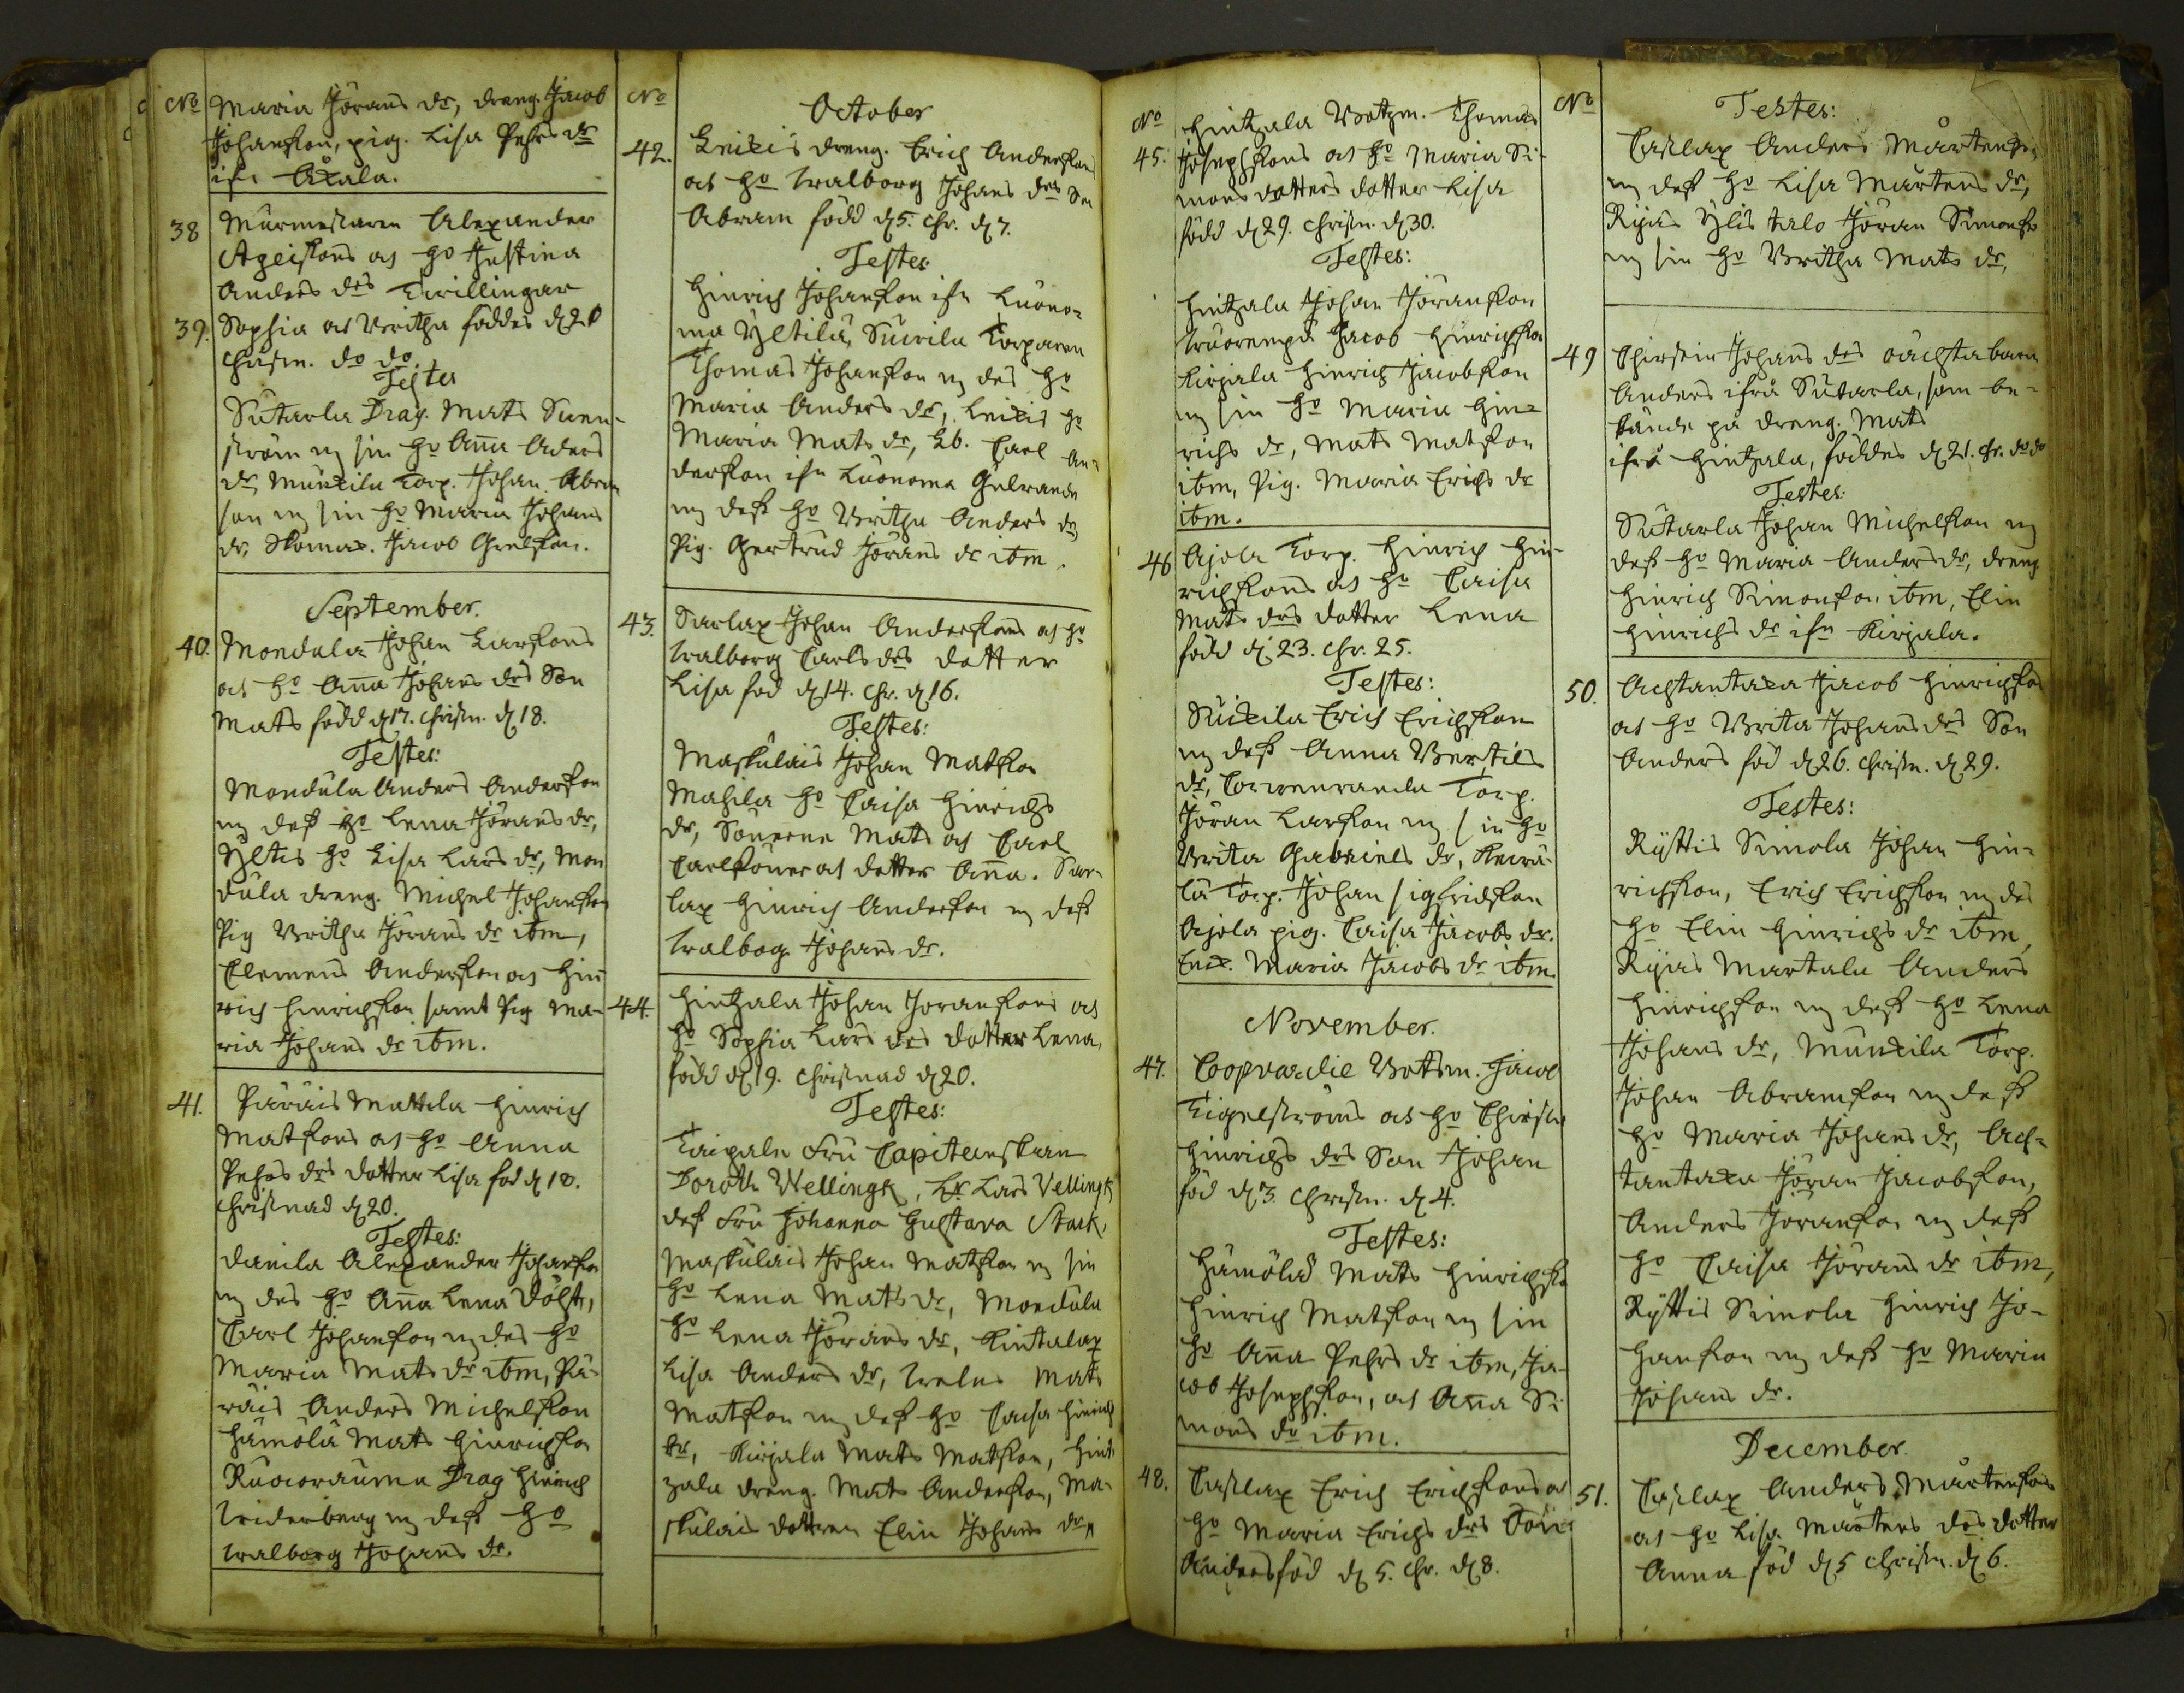 No
Maria Jörans dr, dreng. Jacob
Johansson, pig. Lisa Pehrs dr
ifr. Ackala.
38 Murmestaren Alexander
Ageissons as ho Justina
Anders drs Twillingar
39. Sophia as Britha föddes d. 20
Christn. do do.
Testes
Sutarla Drag. Mats Swen-
ström m sin ho Aña Aders
dr, Munkila Torp. Johan Abram
son m sin ho Maria Johans
dr, Skomak. Jacob Grelsson.
September.
40. Mondala Johan Larssons
as ho Aña Johans drs Son
Mats född d. 17. Christn. d. 18.
Testes:
Mondula Anders Andersson
m dess ho Lena Jörans dr,
Yltis ho Lisa Lars dr, Mon
dula dreng. Michel Johansson
Pig Britha Jörans dr ibm,
Clemens Andersson as Hin
rich Hinrichsson samt Pig Ma-
ria Johans dr ibm.
41. Päräis Mattila Hinrich
Matssons as ho Anna
Pehrs drs dotter Lisa föd d. 18.
Christnad d. 20.
Testes:
Danila Alexander Johansson
m des ho Aña Lena Dölst,
Carl Johansson m des ho
Maria Mats dr ibm, Pä-
räis Anders Michelsson
Hämölä Mats Hinrichsson
Ruokorauma Drag Hinrich
Widerberg m dess ho
Walborg Johans dr.
No
October
42. Leikis dreng. Erich Anderssons
as ho Walborg Johans drs Son
Abram född d. 5. Chr. d. 7.
Testes
Hinrich Johansson ifr Luono-
ma Yltilä, Suikila Torparen
Thomas Johansson m des ho
Maria Anders dr, Leikis ho
Maria Mats dr, Lb. Carl An-
dersson ifr Luonoma Gulkrands
m dess ho Britha Anders dr
Pig. Gertrud Jörans dr ibm.
43. Sarlax Johan Anderssons as ho
Walborg Carls drs dotter
Lisa föd d. 14. Chr. d. 16.
Testes:
Maskulais Johan Matsson
Mahila ho Caisa Hinrichs
dr, Sönerne Mats as Carl
Carlssöner as dotter Aña. Sar-
lax Hinrich Andersson m dess
Walbog Johans dr.
44. Hintzala Johan Joranssons as
ho Sophia Lars drs dotter Lena,
född d. 19. Christnad d. 20.
Testes:
Taipale Fru Capitenskan
Doroth Wellingk, Hr Lars Vellingk
dess Fru Johanna Gustava Stark,
Maskulais Johan Matsson m sin
ho Lena Mats dr, Mondula
ho Lena Jörans dr, Kintalax
Lisa Anders dr, Welus Mats
Matsson m dess ho Caisa Hinrichs
dr, Kirjala Mats Matsson, Hint
zala dreng. Mats Andersson, Ma-
skulais dottren Elin Johans dr,
No
45. Hintzala Botzm. Thomas
Josephssons as ho Maria Si-
mons dotters dotter Lisa
född d. 29. Christn. d. 30.
Testes:
Hintzala Johan Jöransson
Jacob Hinrichsson
Kirjala Hinrich Jacobsson
m sin ho Maria Hin-
richs dr, Mats Matsson
ibm, Pig. Maria Erichs dr
ibm.
46 Ajola Torp. Hinrich Hin-
richssons as ho Caisa
Mats drs dotter Lena
född d. 23. Chr. 25.
Testes:
Suikila Erich Erichsson
m dess Anna Bertils
dr, Torp.
Jöran Larsson m sin ho
Brita Gabriels dr,
Torp. Johan Sigfridsson
Ajola pig. Caisa Jacobs dr.
Enk. Maria Jacobs dr ibm.
November.
47. Coopvardie Botsm. Jacob
Tigelströms as ho Chirstin
Hinrichs drs Son Johan
föd d. 3. Christn. d. 4.
Testes:
Hämölä Mats Hinrichsson
Hinrich Matsson m sin
ho Aña Pehrs dr ibm, Ja-
cob Josephsson, as Aña Si-
mons dr ibm.
48. Carlax Erich Erichssons as
ho Maria Erichs drs Son
Anders föd d. 5. Chr. d. 8.
No
Testes:
Carlax Anders Mårtensson
m dess ho Lisa Mårtens dr,
Röjäs Ylis talo Jöran Simonss
m sin ho Britha Mats dr,
49 Chirstin Johans drs oächta barn
Anders ifrå Sutarla, som be-
kände på dreng. Mats
ifrå Hintzala, föddes d. 21. Chr. do do
Testes:
Sutarla Johan Michelsson m
dess ho Maria Anders dr, dreng
Hinrich Simonsson ibm, Elin
Hinrichs dr ifr Kirjala.
50. Achtantaka Jacob Hinrichsson
as ho Brita Johans drs Son
Anders föd d. 26. Christn. d. 29.
Testes:
Ryttis Simola Johan Hin-
richsson, Erich Erichsson m des
ho Elin Hinrichs dr ibm,
Röjäs Martala Anders
Hinrichsson m dess ho Lena
Johans dr, Munkila Torp.
Johan Abramsson m dess
ho Maria Johans dr, Ach-
tantaka Jöran Jacobsson,
Anders Joransson m dess
ho Caisa Jörans dr ibm,
Ryttis Simola Hinrich Jo-
hansson m dess ho Maria
Johans dr.
December.
51. Carlax Anders Mårtenssons
as ho Lisa Mårtens drs dotter
Anna föd d. 5 Christn. d. 6.